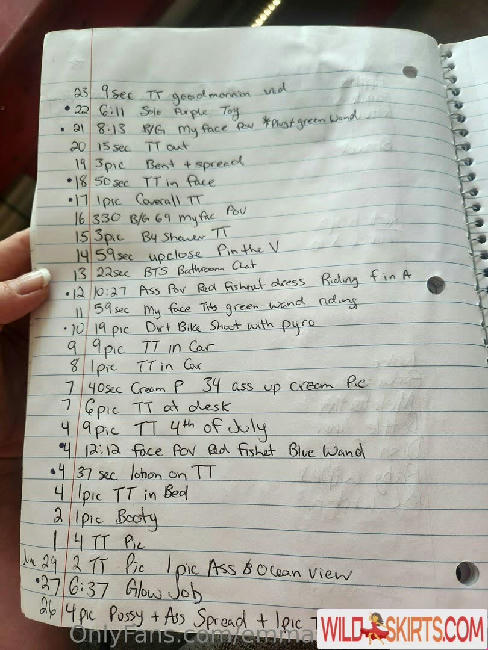 23 9sec TT goodmornin vid
• 22 6:11 Solo Purple Toy
• 21 8:13 B/G My face Pov green wand
20 15sec TT out
19 3pic Bent + spread
• 18 50sec TT in face
• 17 1pic Coverall TT
16 330 B/G 69 My fac Pov
15 3pic By Shower TT
14 59sec upclose P in the V
13 22sec BTS Bathroom Chat
• 12 10:27 Ass Pov Red Fishnet dress Riding f in A
11 59sec My face Tits green wand riding
• 10 19 pic Dirt Bike Shoot with pyro
9 9pic TT in Car
8 1pic TT in Car
7 40sec Cream P 34 ass up cream Pic
7 6pic TT at desk
4 9pic TT 4th of July
• 4 12:12 face Pov Red Fishet Blue Wand
• 4 37 sec lotion on TT
4 1pic TT in Bed
2 1pic Booty
1 4 TT Pic
29 2 TT Pic 1pic Ass & ocean view
• 27 6:37 Glow Job
26 4pic Pussy + Ass Spread + 1pic
OnlyFans.com/emma
WILDSKIRTS.COM